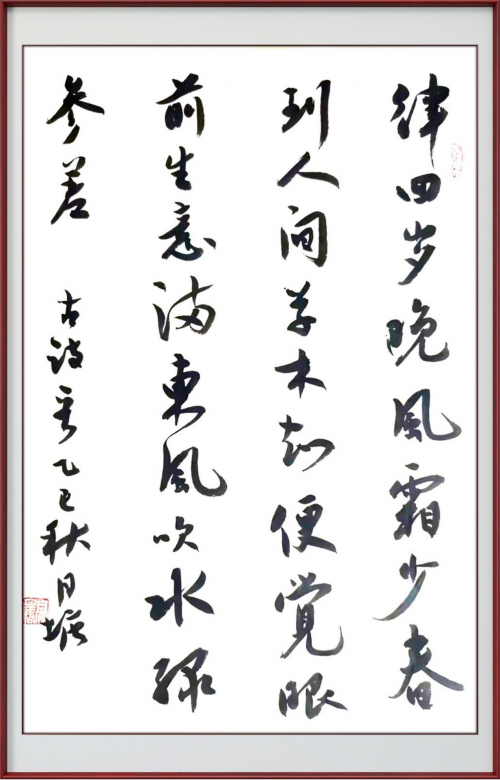 律回岁晚風霜少春
到人间草木知便覺眼
前生意满東風吹水绿
参差
古诗 乙巳秋月